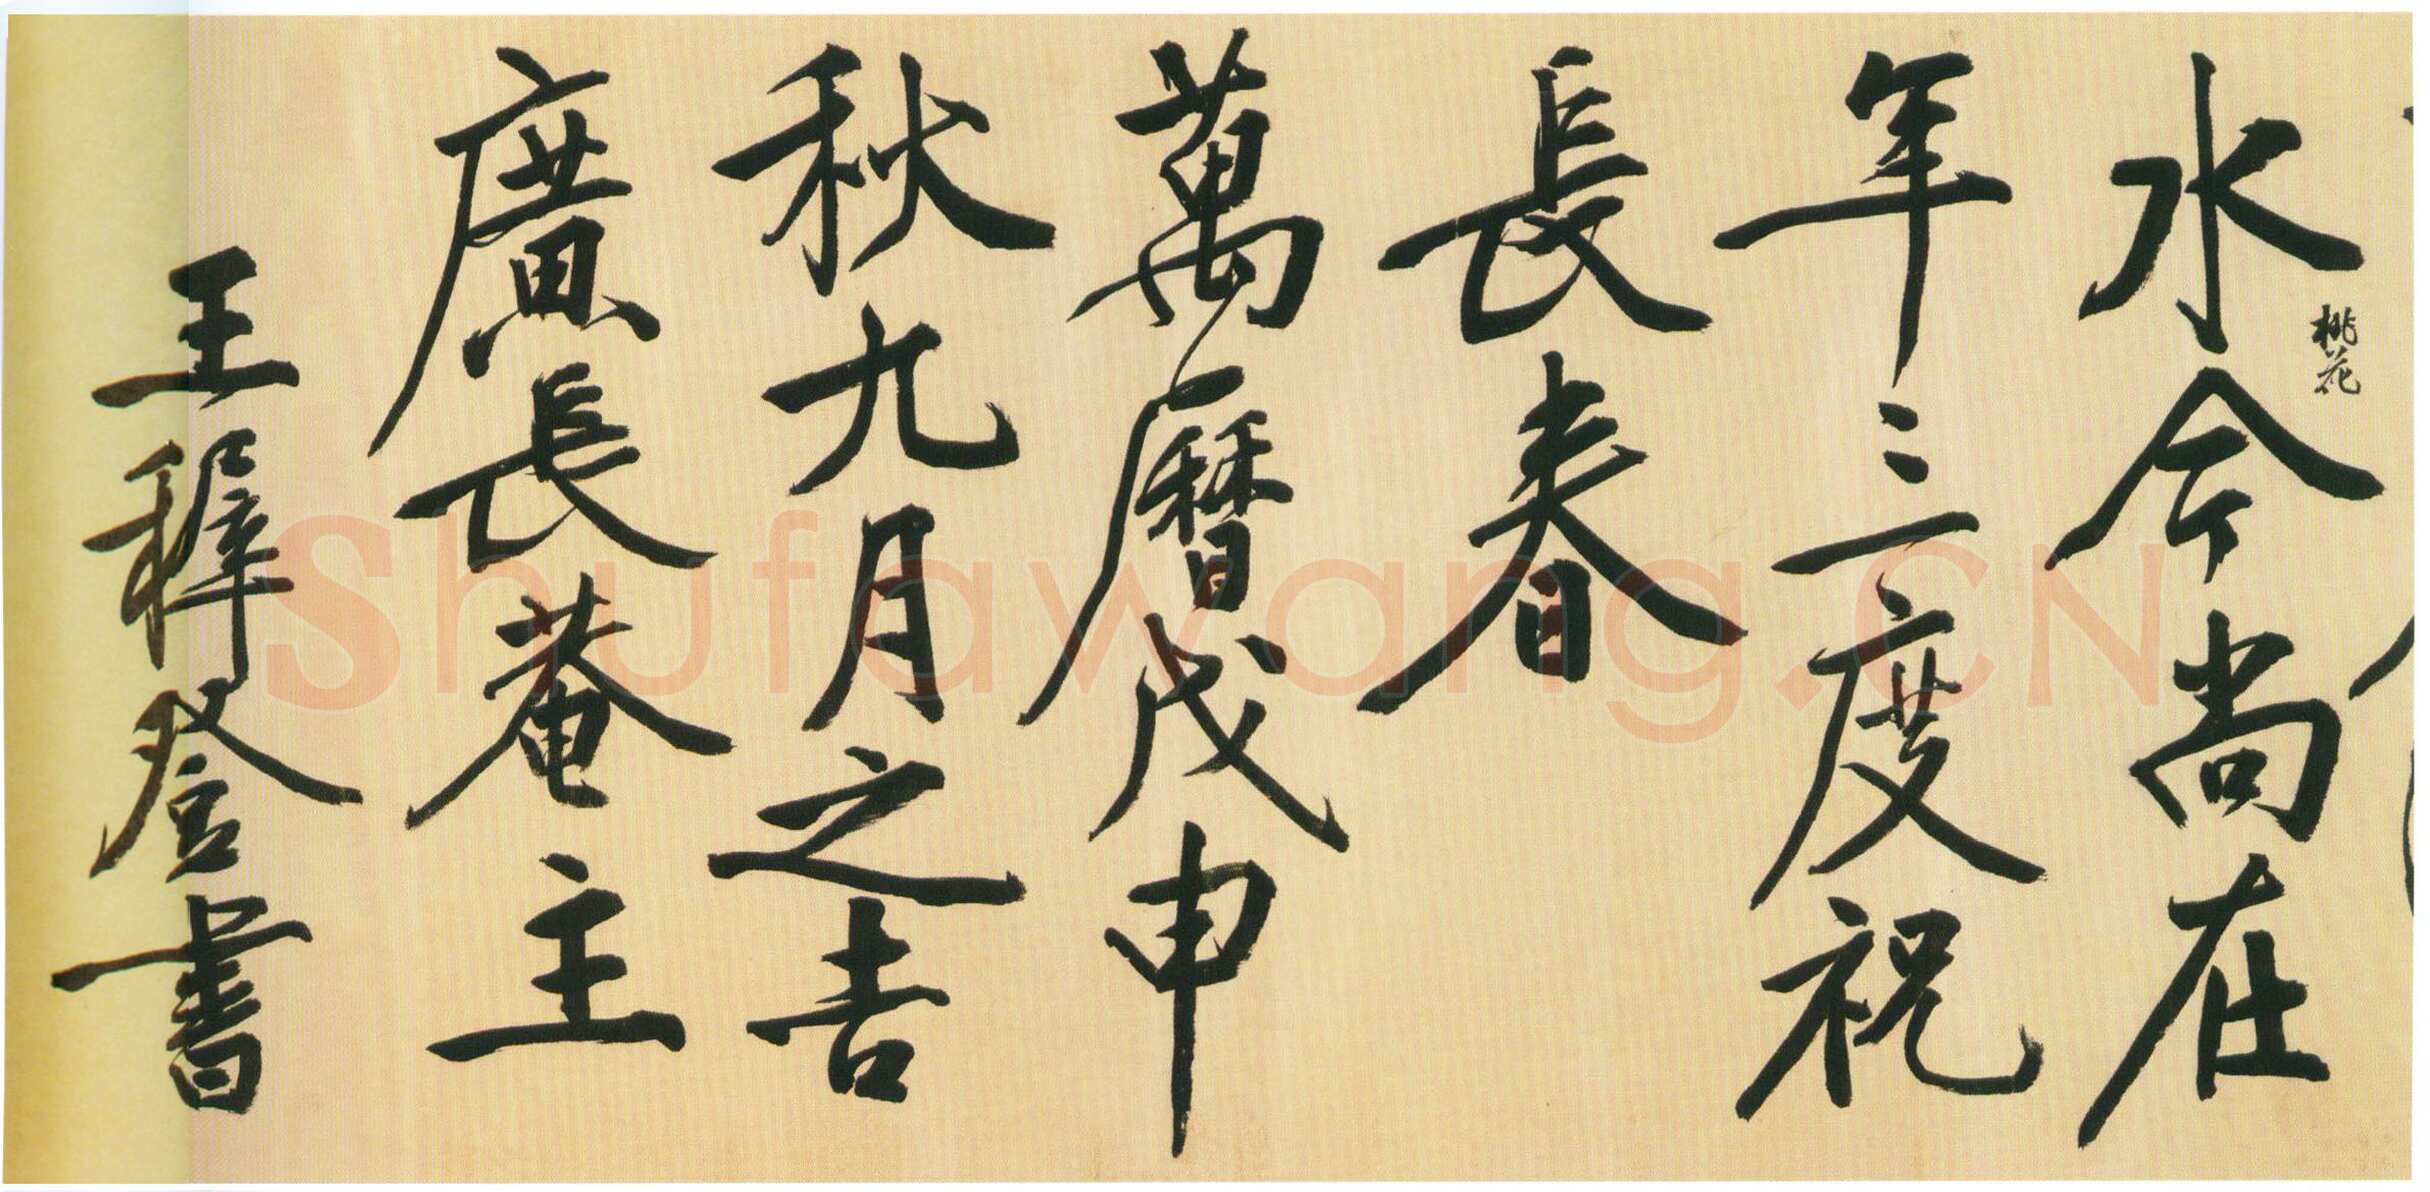 水今尚在
桃花
年三度祝
長春
萬曆戊申
秋九月之吉
廣長菴主
王穉登書
Shufawang.CN